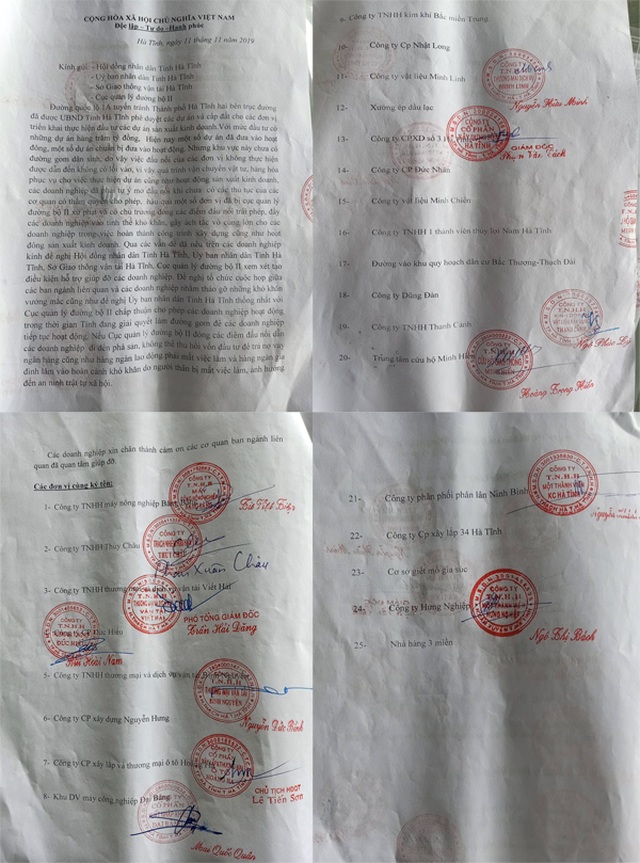 CỘNG HÒA XÃ HỘI CHỦ NGHĨA VIỆT NAM
Độc lập – Tự do –Hạnh phúc
Hà Tĩnh, ngày 11 tháng 11 năm 2019
Kính gửi: - Hội đồng nhân dân Tỉnh Hà Tĩnh
- Uỷ ban nhân dân Tỉnh Hà Tĩnh
- Sở Giao thông vận tải Hà Tĩnh
- Cục quản lý đường bộ II
Đường quốc lộ 1A tuyến tránh Thành phố Hà Tĩnh hai bên trục đường
đã được UBND Tỉnh Hà Tĩnh phê duyệt các dự án và cấp đất cho các đơn vị
triển khai thực hiện đầu tư các dự án sản xuất kinh doanh.Với mức đầu tư có
những dự án hàng trăm tỷ đồng, Hiện nay một số dự án đã đưa vào hoạt
động, một số dự án chuẩn bị đưa vào hoạt động. Nhưng khu vực này chưa có
đường gom dân sinh, do vậy việc đấu nối của các đơn vị không thực hiện
được dẫn đến không có lối vào, vì vậy quá trình vận chuyển vật tư, hàng hóa
phục vụ cho việc thực hiện dự án cũng như hoạt động sản xuất kinh doanh,
các doanh nghiệp đã phải tự ý mở đấu nối khi chưa có các thủ tục của các
cơ quan có thẩm quyền cho phép. hầu quả một số đơn vị đã bị cục quản lý
đường bộ II xử phạt và có chủ trương đóng các điểm đấu nối trái phép, đẩy
các doanh nghiệp vào tình thế khó khăn, gây ách tắc vô cùng lớn cho các
doanh nghiệp trong việc hoàn thành công trình xây dựng cũng như hoạt
động sản xuất kinh doanh. Qua các vấn đề đã nêu trên các doanh nghiệp
kính đề nghị Hội đồng nhân dân Tỉnh Hà Tĩnh, Uỷ ban nhân dân Tỉnh Hà
Tĩnh, Sở Giao thông vận tải Hà Tĩnh, Cục quản lý đường bộ II xem xét tạo
điều kiện hỗ trợ giúp đỡ các doanh nghiệp. Đề nghị tổ chức cuộc họp giữa
các ban ngành liên quan và các doanh nghiệp nhằm tháo gỡ những khó khăn
vướng mắc cũng như đề nghị Uỷ ban nhân dân Tỉnh Hà Tĩnh thống nhất với
Cục quản lý đường bộ II chấp thuận cho phép các doanh nghiệp hoạt động
trong thời gian Tỉnh đang giải quyết làm đường gom để các doanh nghiệp
tiếp tục hoạt động. Nếu Cục quản lý đường bộ II đóng các điểm đấu nối dẫn
các doanh nghiệp đi đến phá sản, không thể thu hồi vốn đầu tư để trả nợ vay
ngân hàng cũng như hàng ngàn lao động phải mất việc làm và hàng ngàn gia
đình lâm vào hoàn cảnh khó khăn do người thân bị mất việc làm, ảnh hưởng
đến an ninh trật tự xã hội.
Công ty TNHH kim khí Bắc miền Trung
10- Công ty Cp Nhật Long
11- Công ty vật liệu Minh Linh
Nguyễn Hữu Minh
12- Xưởng ép dầu lạc
13- Công ty CPXD số 3
CÔNG TY
CỔ PHẦN
HÀ TĨNH
GIÁM ĐỐC
14- Công ty CP Đức Nhân
15- Công ty vật liệu Minh Chiến
16- Công ty TNHH 1 thành viên thuỷ lợi Nam Hà Tĩnh
17- Đường vào khu quy hoạch dân cư Bắc Thượng-Thạch Đài
18- Công ty Dũng Đàn
19- Công ty TNHH Thanh Cảnh
20- Trung tâm cứu hộ Minh
CÔNG TY
T.N.H.H
Hoàng Trọng Hiến
Các doanh nghiệp xin chân thành cảm ơn các cơ quan ban ngành liên
quan đã quan tâm giúp đỡ.
Các đơn vị cùng ký tên:
1- Công ty TNHH máy nông nghiệp
CÔNG TY
T.N.H.H
MÁY
2- Công ty TNHH Thủy Châu
Phan Xuân Châu
3- Công ty TNHH thương mại dịch vụ vận tải Viết Hải
PHÓ TỔNG GIÁM ĐỐC
Trần Hải Đăng
Đức Hiếu
Bùi Hoài Nam
5- Công ty TNHH thương mại và dịch vụ vận tải
T.N.H.H
Nguyễn Đức Bính
6- Công ty CP xây dựng Nguyên Hưng
7- Công ty CP xây lắp và thương mại ô tô
CÔNG TY
CỔ PHẦN
CHỦ TỊCH HĐQT
Lê Tiến Sơn
8- Khu DV máy công nghiệp Đại Bàng
Mai Quốc Quân
21- Công ty phân phối phân lân Ninh Bình
CÔNG TY
T.N.H.H
MỘT THÀNH VIÊN
KC HÀ TĨNH
22- Công ty Cp xây lắp 34 Hà Tĩnh
23- Cơ sở giết mổ gia súc
24- Công ty Hưng Nghiệp
CÔNG TY
T.N.H.H
MỘT THÀNH VIÊN
Ngô Thị Bách
25- Nhà hàng 3 miền